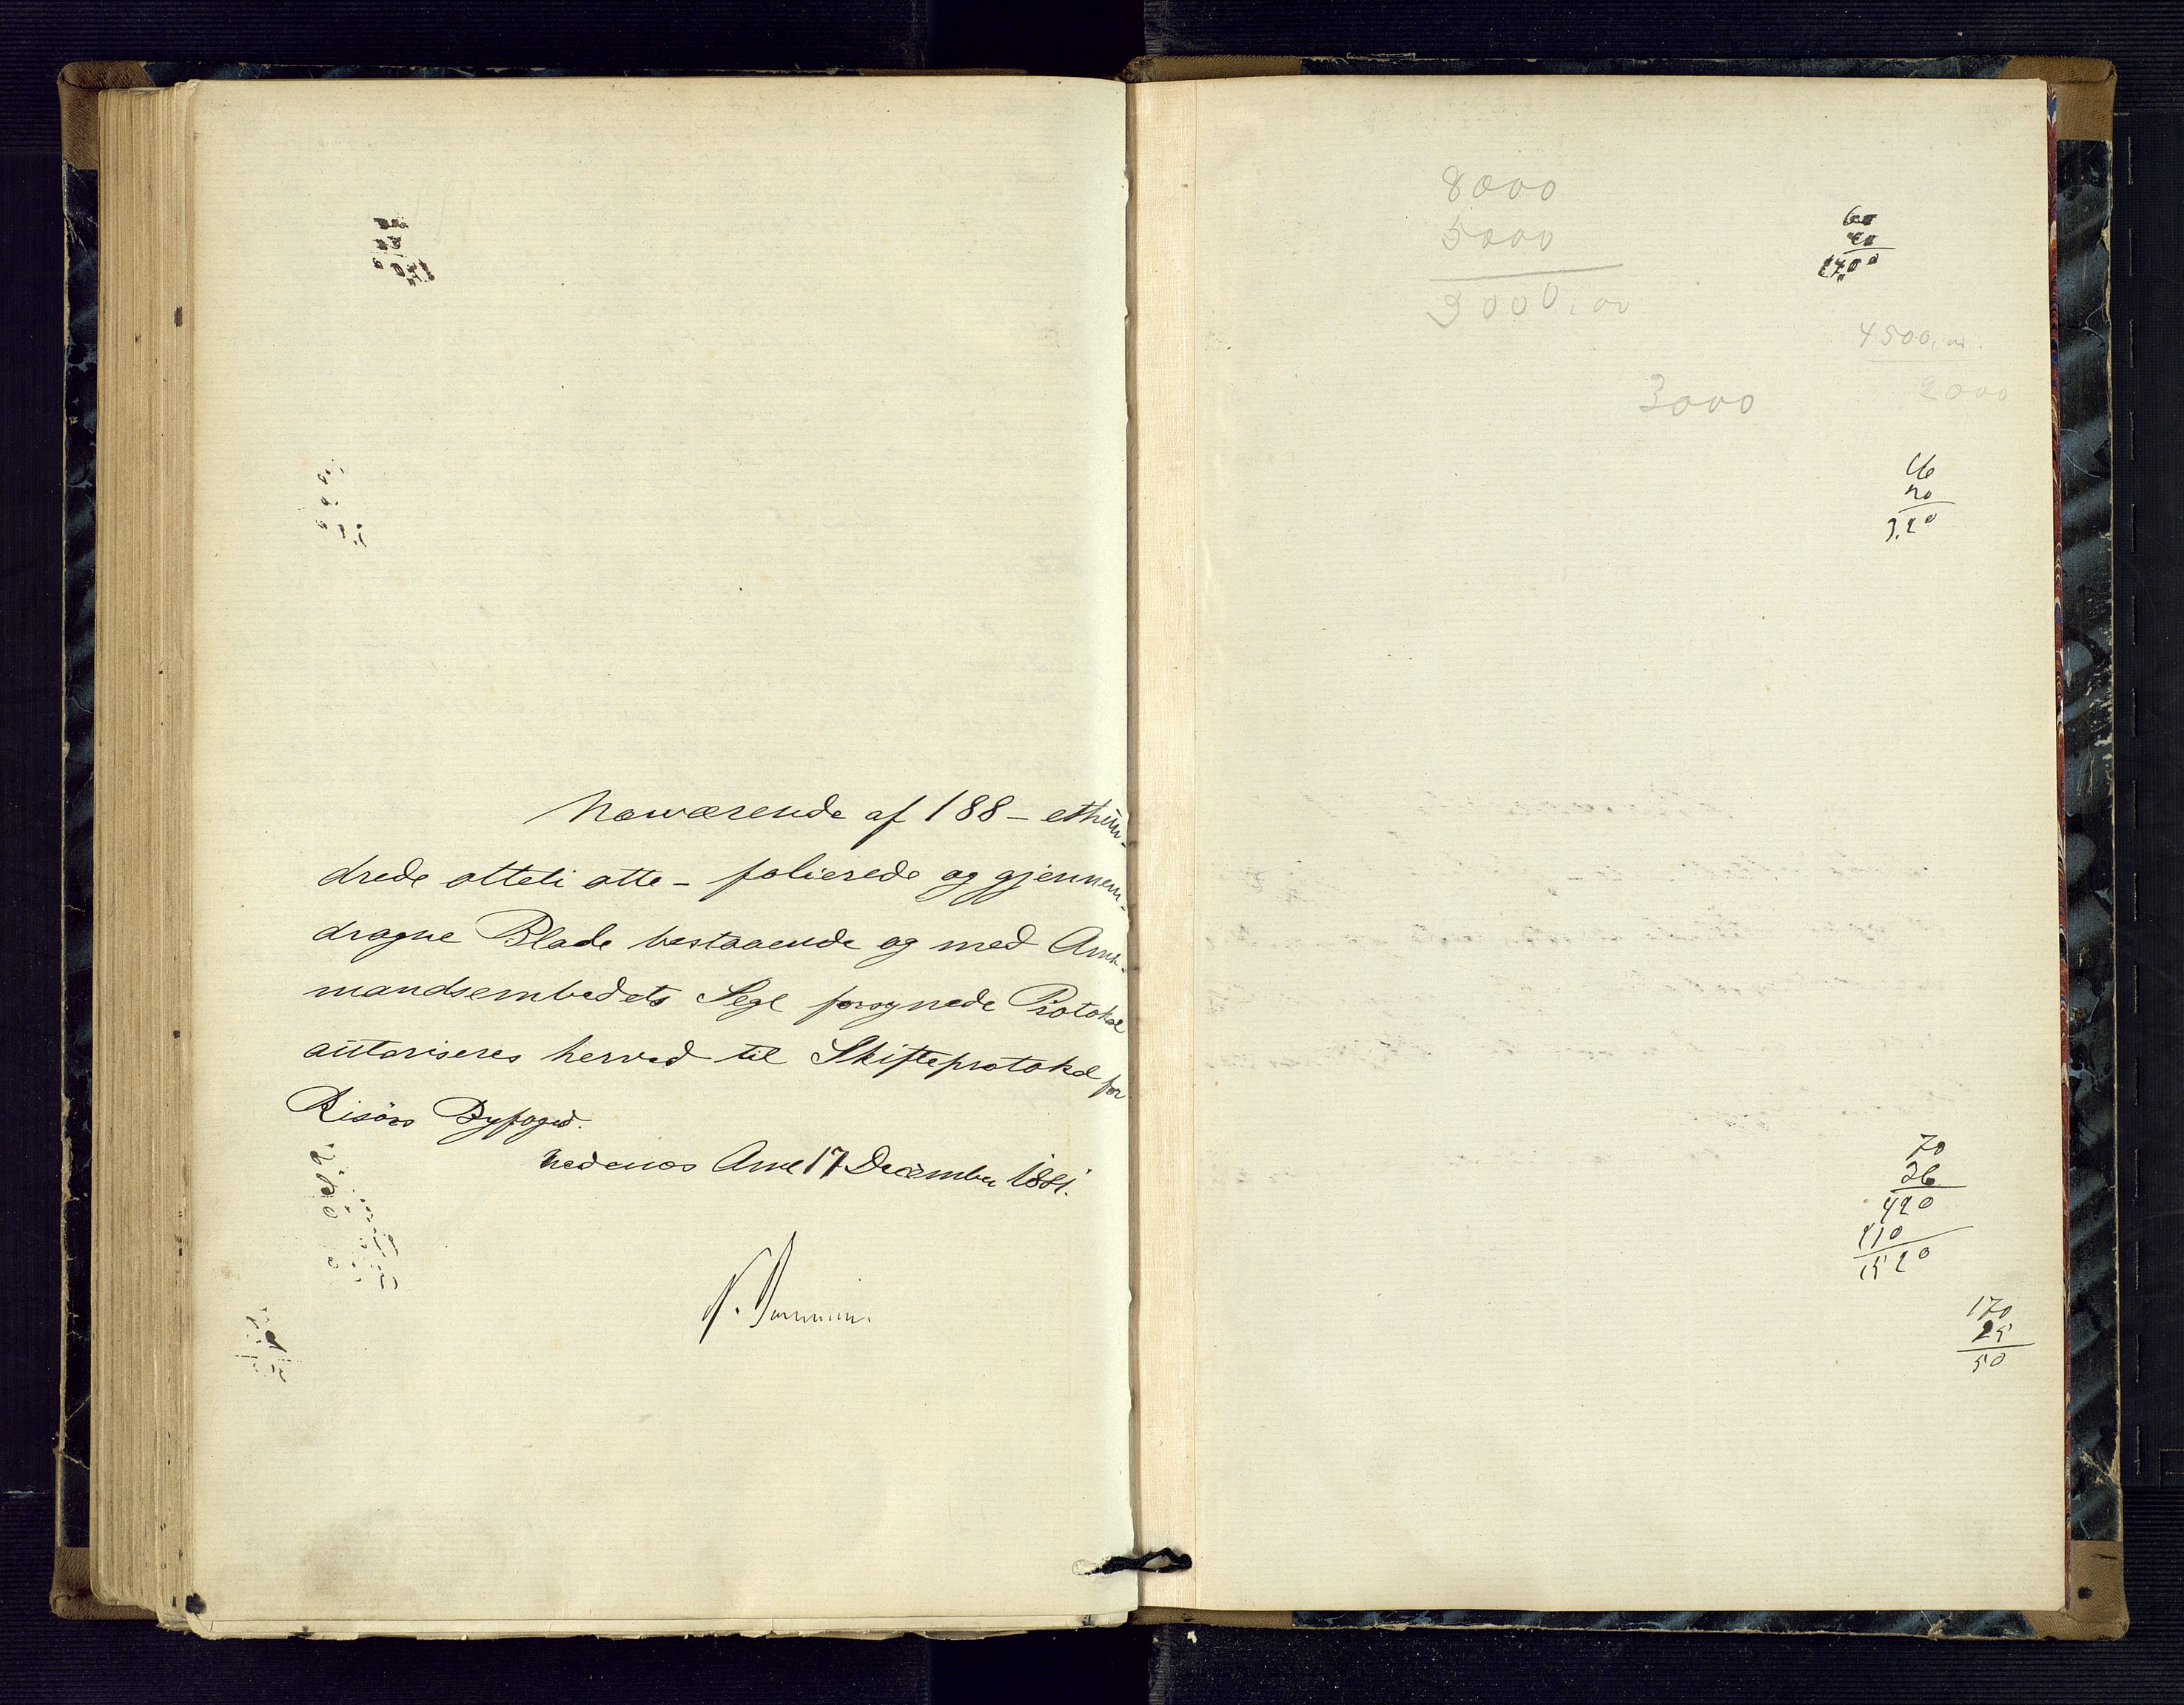 Nærværende af 188 – ethun-
drede otteti otte – folierede og gjennem-
dragne Blade bestaaende og med Amt-
mandsembedets Segl forsynede Protokol
autoriseres herved til Skifteprotokol for
Risörs Byfoged.
Nedenes Amt 17 December 1881.
8000
5000
3000,00
60
1400
4500,00
2000
3000
16
20
3,20
70
36
420
210
1520
170
25
50